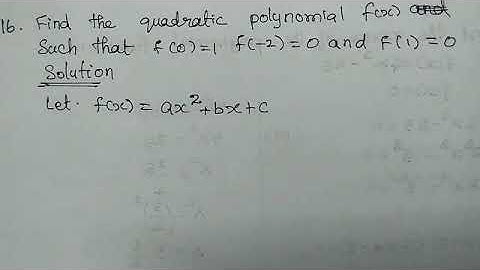 16. Find the quadratic polynomial f(x)
Such that f(0)=1 f(-2)=0 and f(1)=0
Solution
Let. f(x) = ax²+bx+c